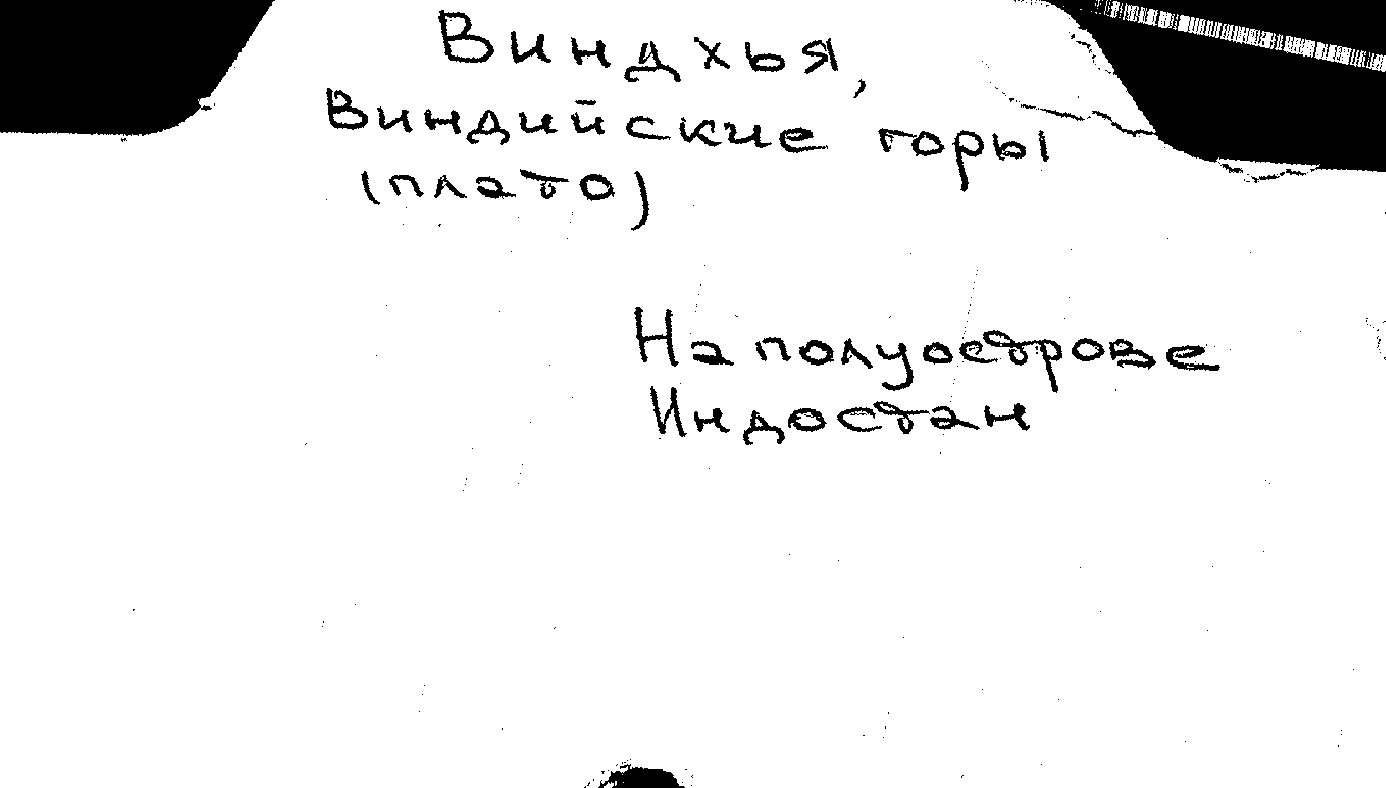 Виндхья,
Виндийские горы
(плато)
На полуострове
Индостан